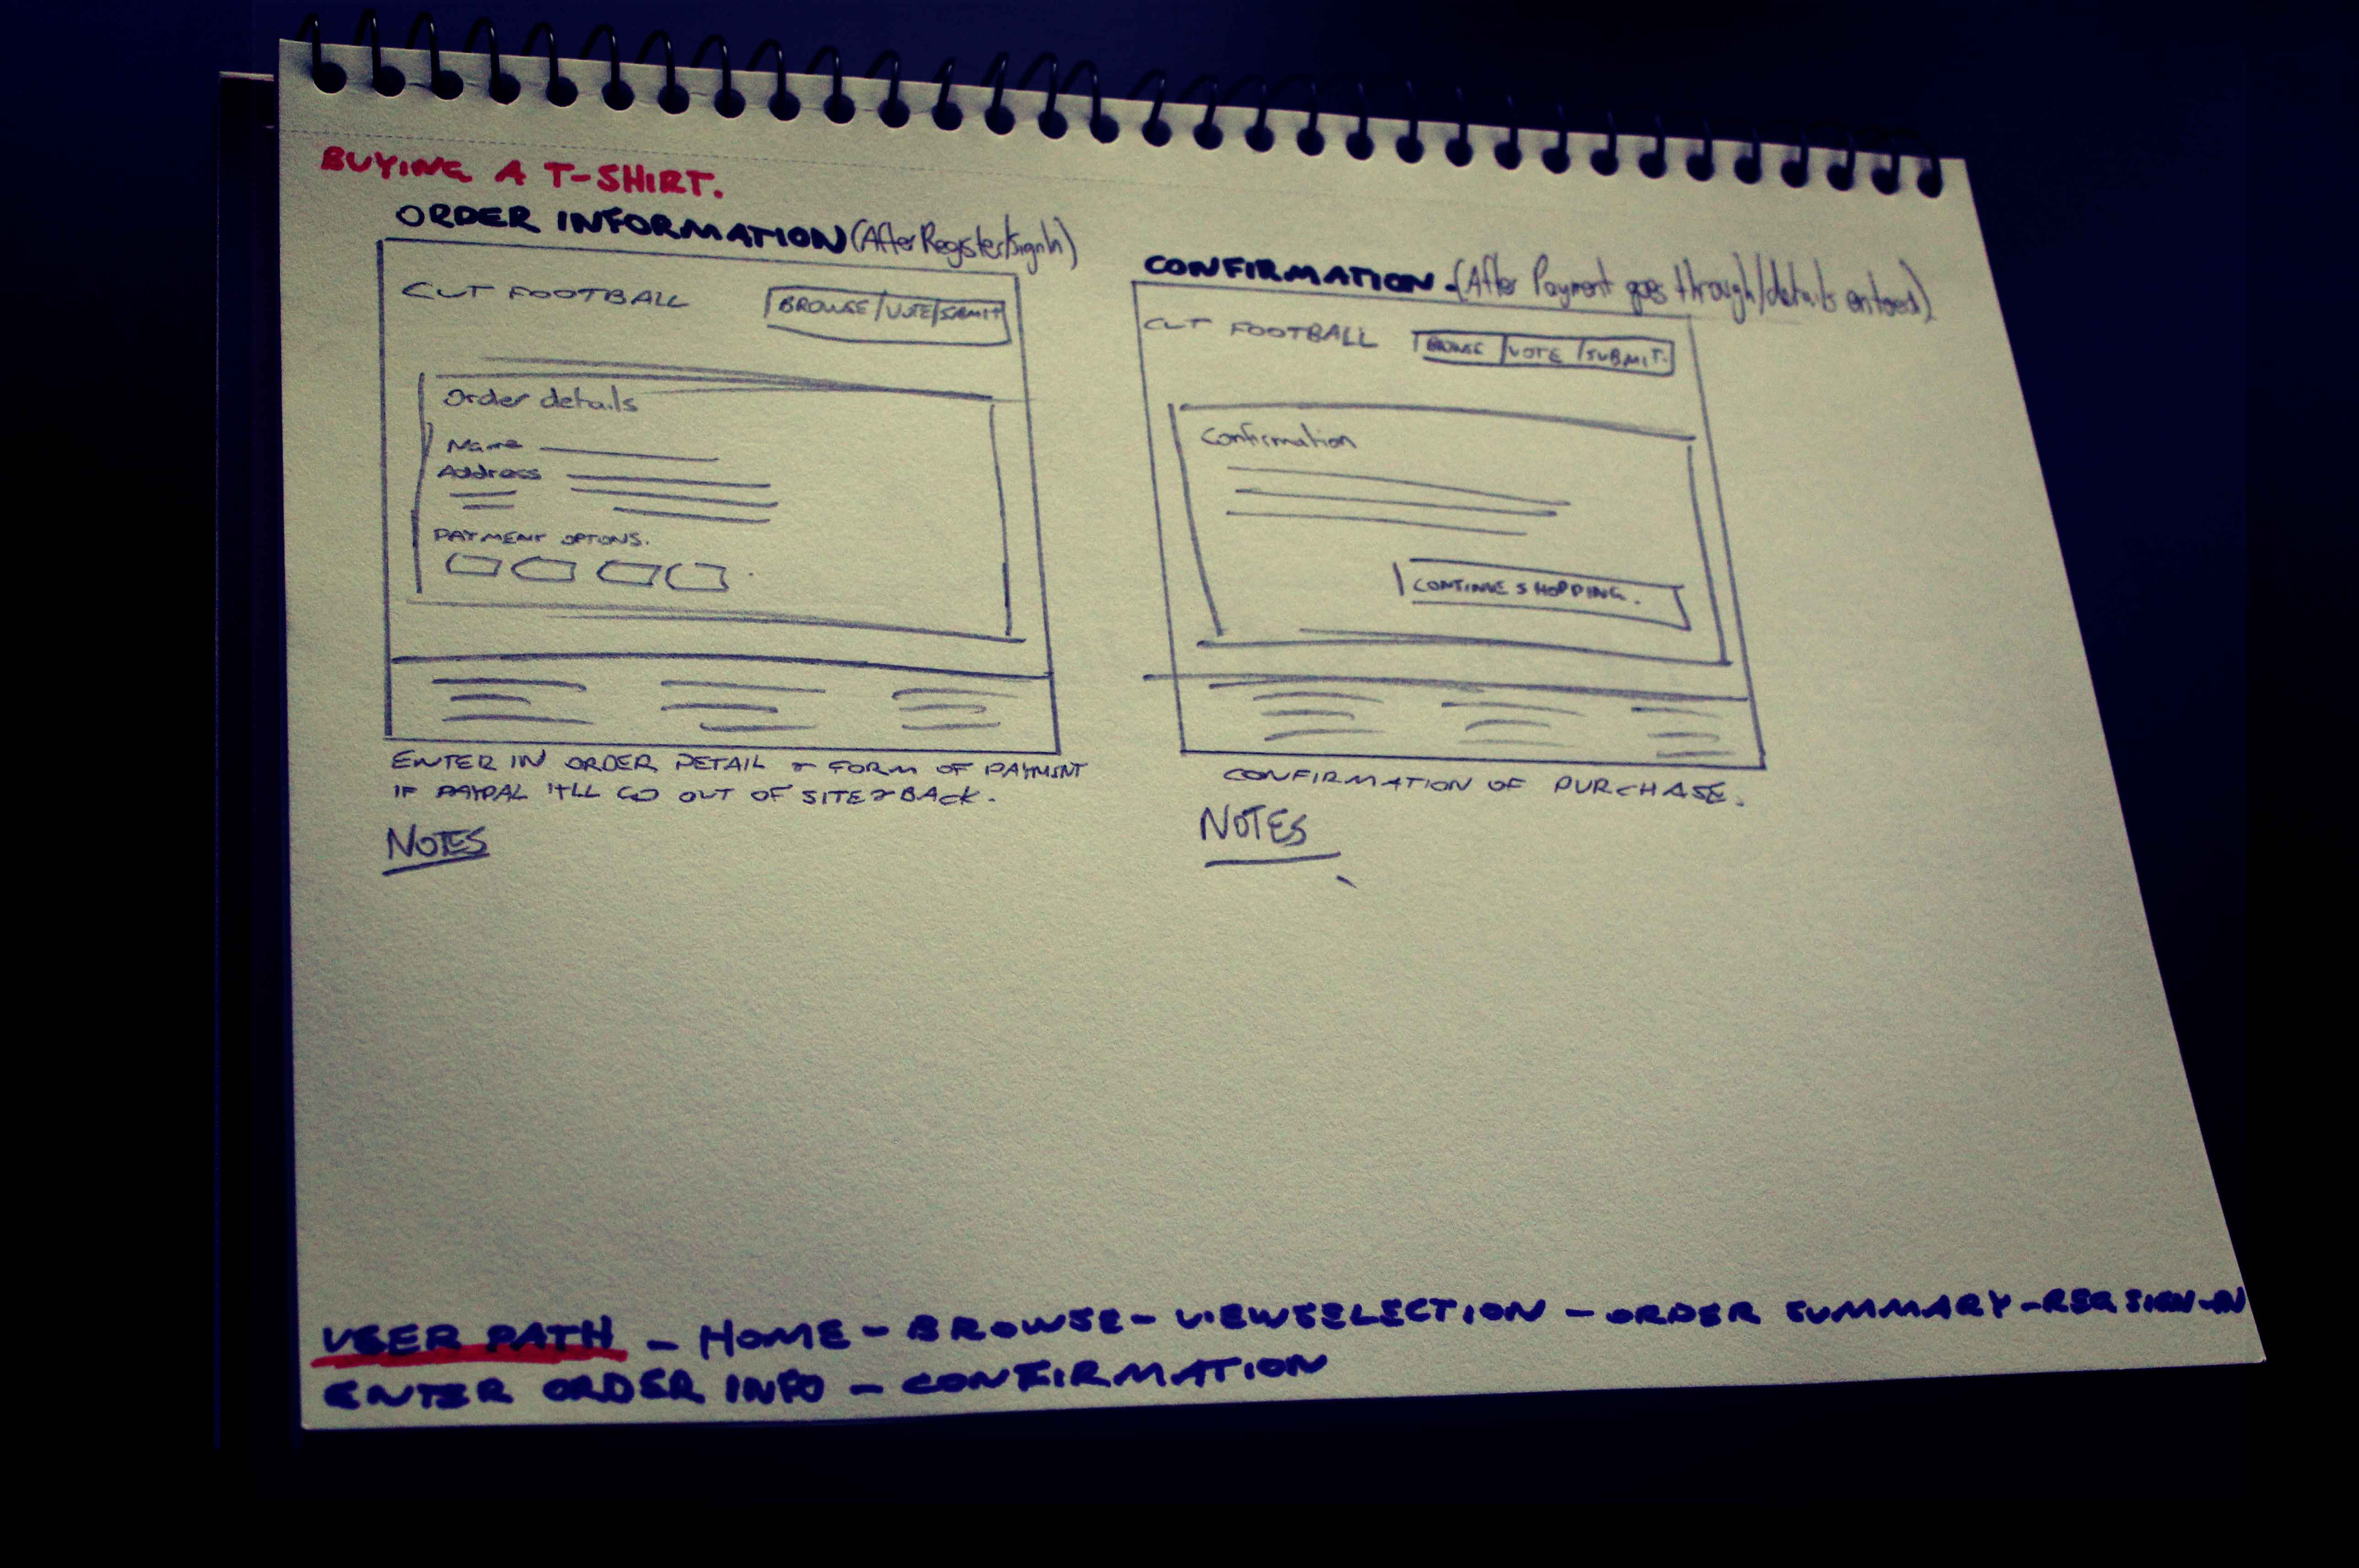 BUYING A T-SHIRT.
ORDER INFORMATION (After Register/Sign In)
CUT FOOTBALL
BROWSE/VOTE/SUBMIT
Order details
Name
Address
PAYMENT OPTIONS.
ENTER IN ORDER DETAIL & FORM OF PAYMENT
IF PAYPAL IT'LL GO OUT OF SITE & BACK.
NOTES
CONFIRMATION. (After Payment goes through/details entered)
CUT FOOTBALL
BROWSE / VOTE / SUBMIT.
Confirmation
CONTINUE SHOPPING.
CONFIRMATION OF PURCHASE.
NOTES
USER PATH - HOME - BROWSE - VIEW SELECTION - ORDER SUMMARY - REG SIGN-IN
ENTER ORDER INFO - CONFIRMATION